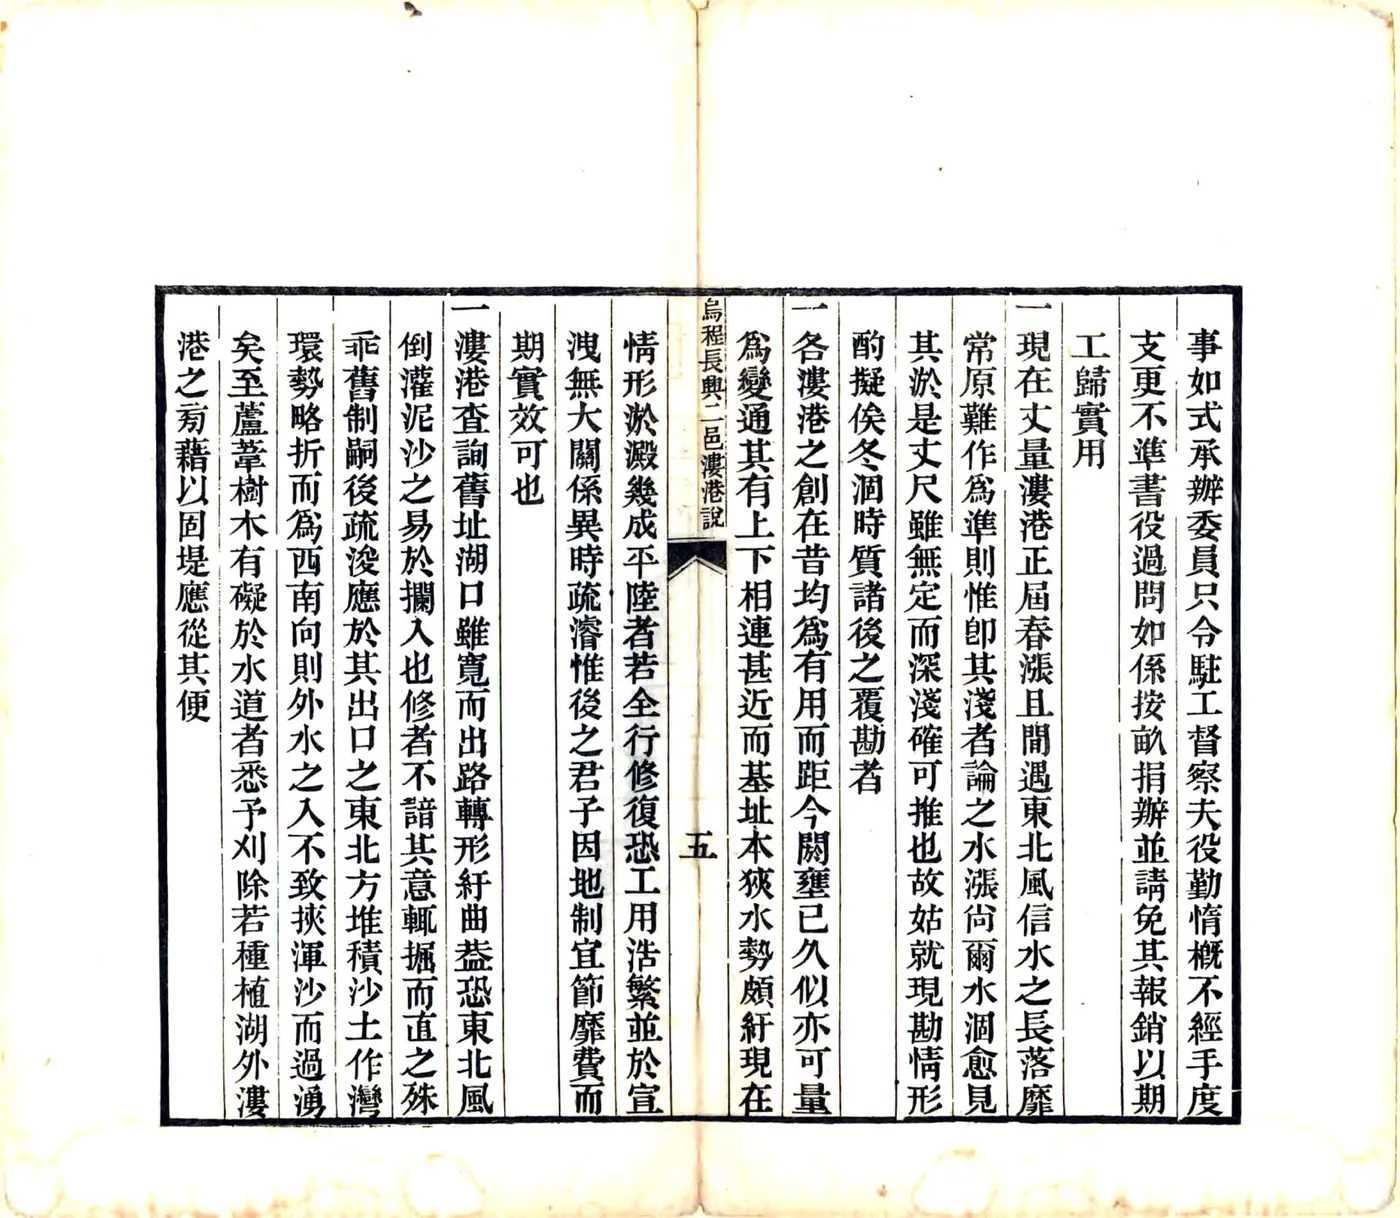 事如式承辦委員只令駐工督察夫役勤惰概不經手度
支更不準書役過問如係按畝捐辦並請免其報銷以期
工歸實用
一現在丈量漊港正屆春漲且間遇東北風信水之長落靡
常原難作為準則惟卽其淺者論之水漲尙爾水涸愈見
其淤是丈尺雖無定而深淺確可推也故姑就現勘情形
酌擬俟冬涸時質諸後之覆勘者
一各漊港之創在昔均為有用而距今閼壅已久似亦可量
為變通其有上下相連甚近而基址本狹水勢頗紆現在
烏程長興二邑漊港說
五
情形淤澱幾成平陸者若全行修復恐工用浩繁並於宣
洩無大關係異時疏濬惟後之君子因地制宜節靡費而
期實效可也
一漊港查詢舊址湖口雖寬而出路轉形紆曲葢恐東北風
倒灌泥沙之易於攔入也修者不諳其意輒掘而直之殊
乖舊制嗣後疏浚應於其出口之東北方堆積沙土作灣
環勢略折而為西南向則外水之入不致挾渾沙而過湧
矣至蘆葦樹木有礙於水道者悉予刈除若種植湖外漊
港之旁藉以固堤應從其便